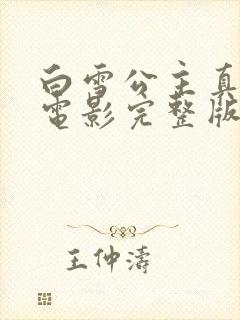 白雪公主真
電影完整版
王仲濤